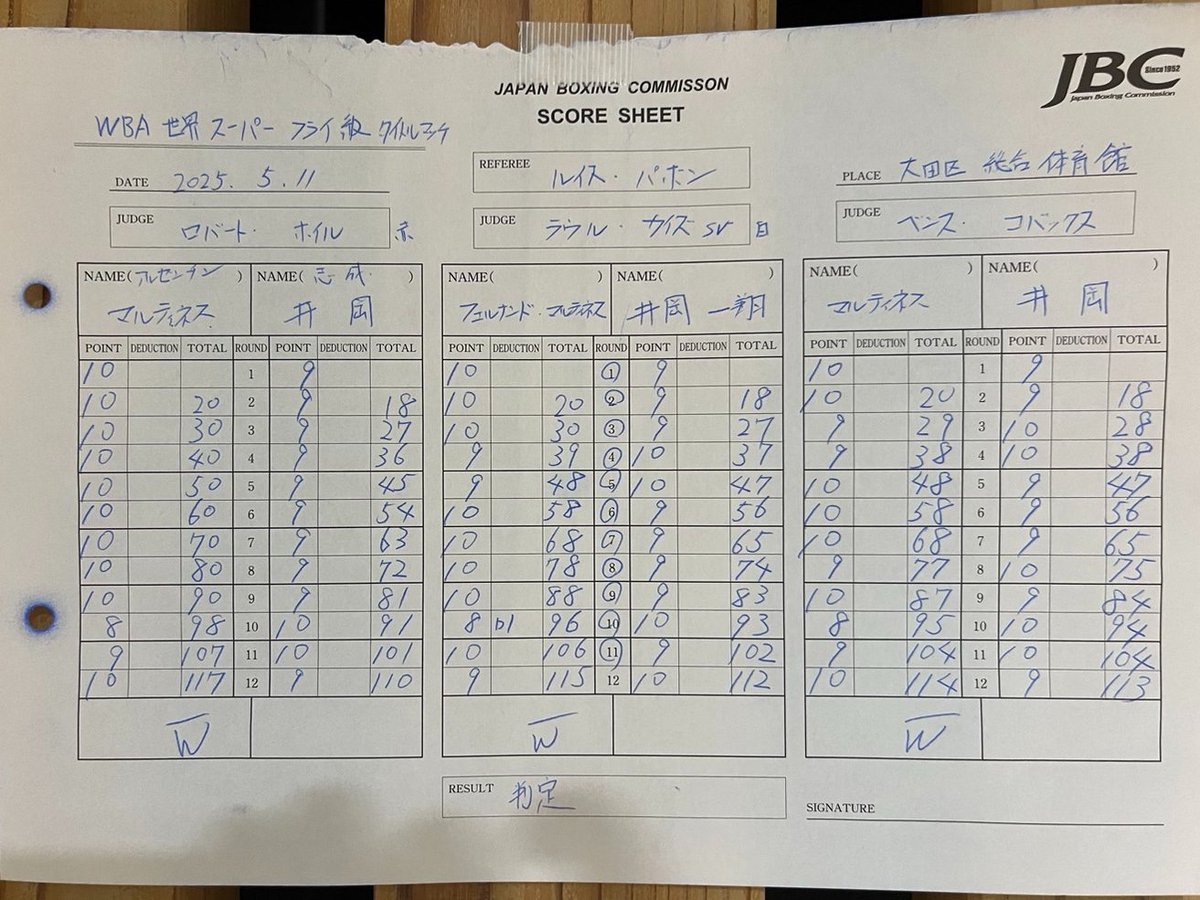 JAPAN BOXING COMMISSON
SCORE SHEET
JBC Since1952
Japan Boxing Commission
WBA 世界スーパーフライ級タイトルマッチ
DATE 2025. 5.11
REFEREE ルイス・パボン
PLACE 大田区総合体育館
JUDGE ロバート・ホイル 赤
JUDGE ラウル・カイズ SV 白
JUDGE ベンス・コバックス
NAME(アルゼンチン) NAME(志成) NAME( ) NAME( ) NAME( ) NAME( )
マルティネス 井岡 フェルナンド・マルティネス 井岡 一翔 マルティネス 井岡
POINT DEDUCTION TOTAL ROUND POINT DEDUCTION TOTAL POINT DEDUCTION TOTAL ROUND POINT DEDUCTION TOTAL POINT DEDUCTION TOTAL ROUND POINT DEDUCTION TOTAL
10 1 9 10 1 9 10 1 9
10 20 2 9 18 10 20 2 9 18 10 20 2 9 18
10 30 3 9 27 10 30 3 9 27 9 29 3 10 28
10 40 4 9 36 9 39 4 10 37 9 38 4 10 38
10 50 5 9 45 9 48 5 10 47 10 48 5 9 47
10 60 6 9 54 10 58 6 9 56 10 58 6 9 56
10 70 7 9 63 10 68 7 9 65 10 68 7 9 65
10 80 8 9 72 10 78 8 9 74 9 77 8 10 75
10 90 9 9 81 10 88 9 9 83 10 87 9 9 84
8 98 10 10 91 8 D1 96 10 10 93 8 95 10 10 94
9 107 11 10 101 10 106 11 9 102 9 104 11 10 104
10 117 12 9 110 9 115 12 10 112 10 114 12 9 113
W W W
RESULT 判定
SIGNATURE